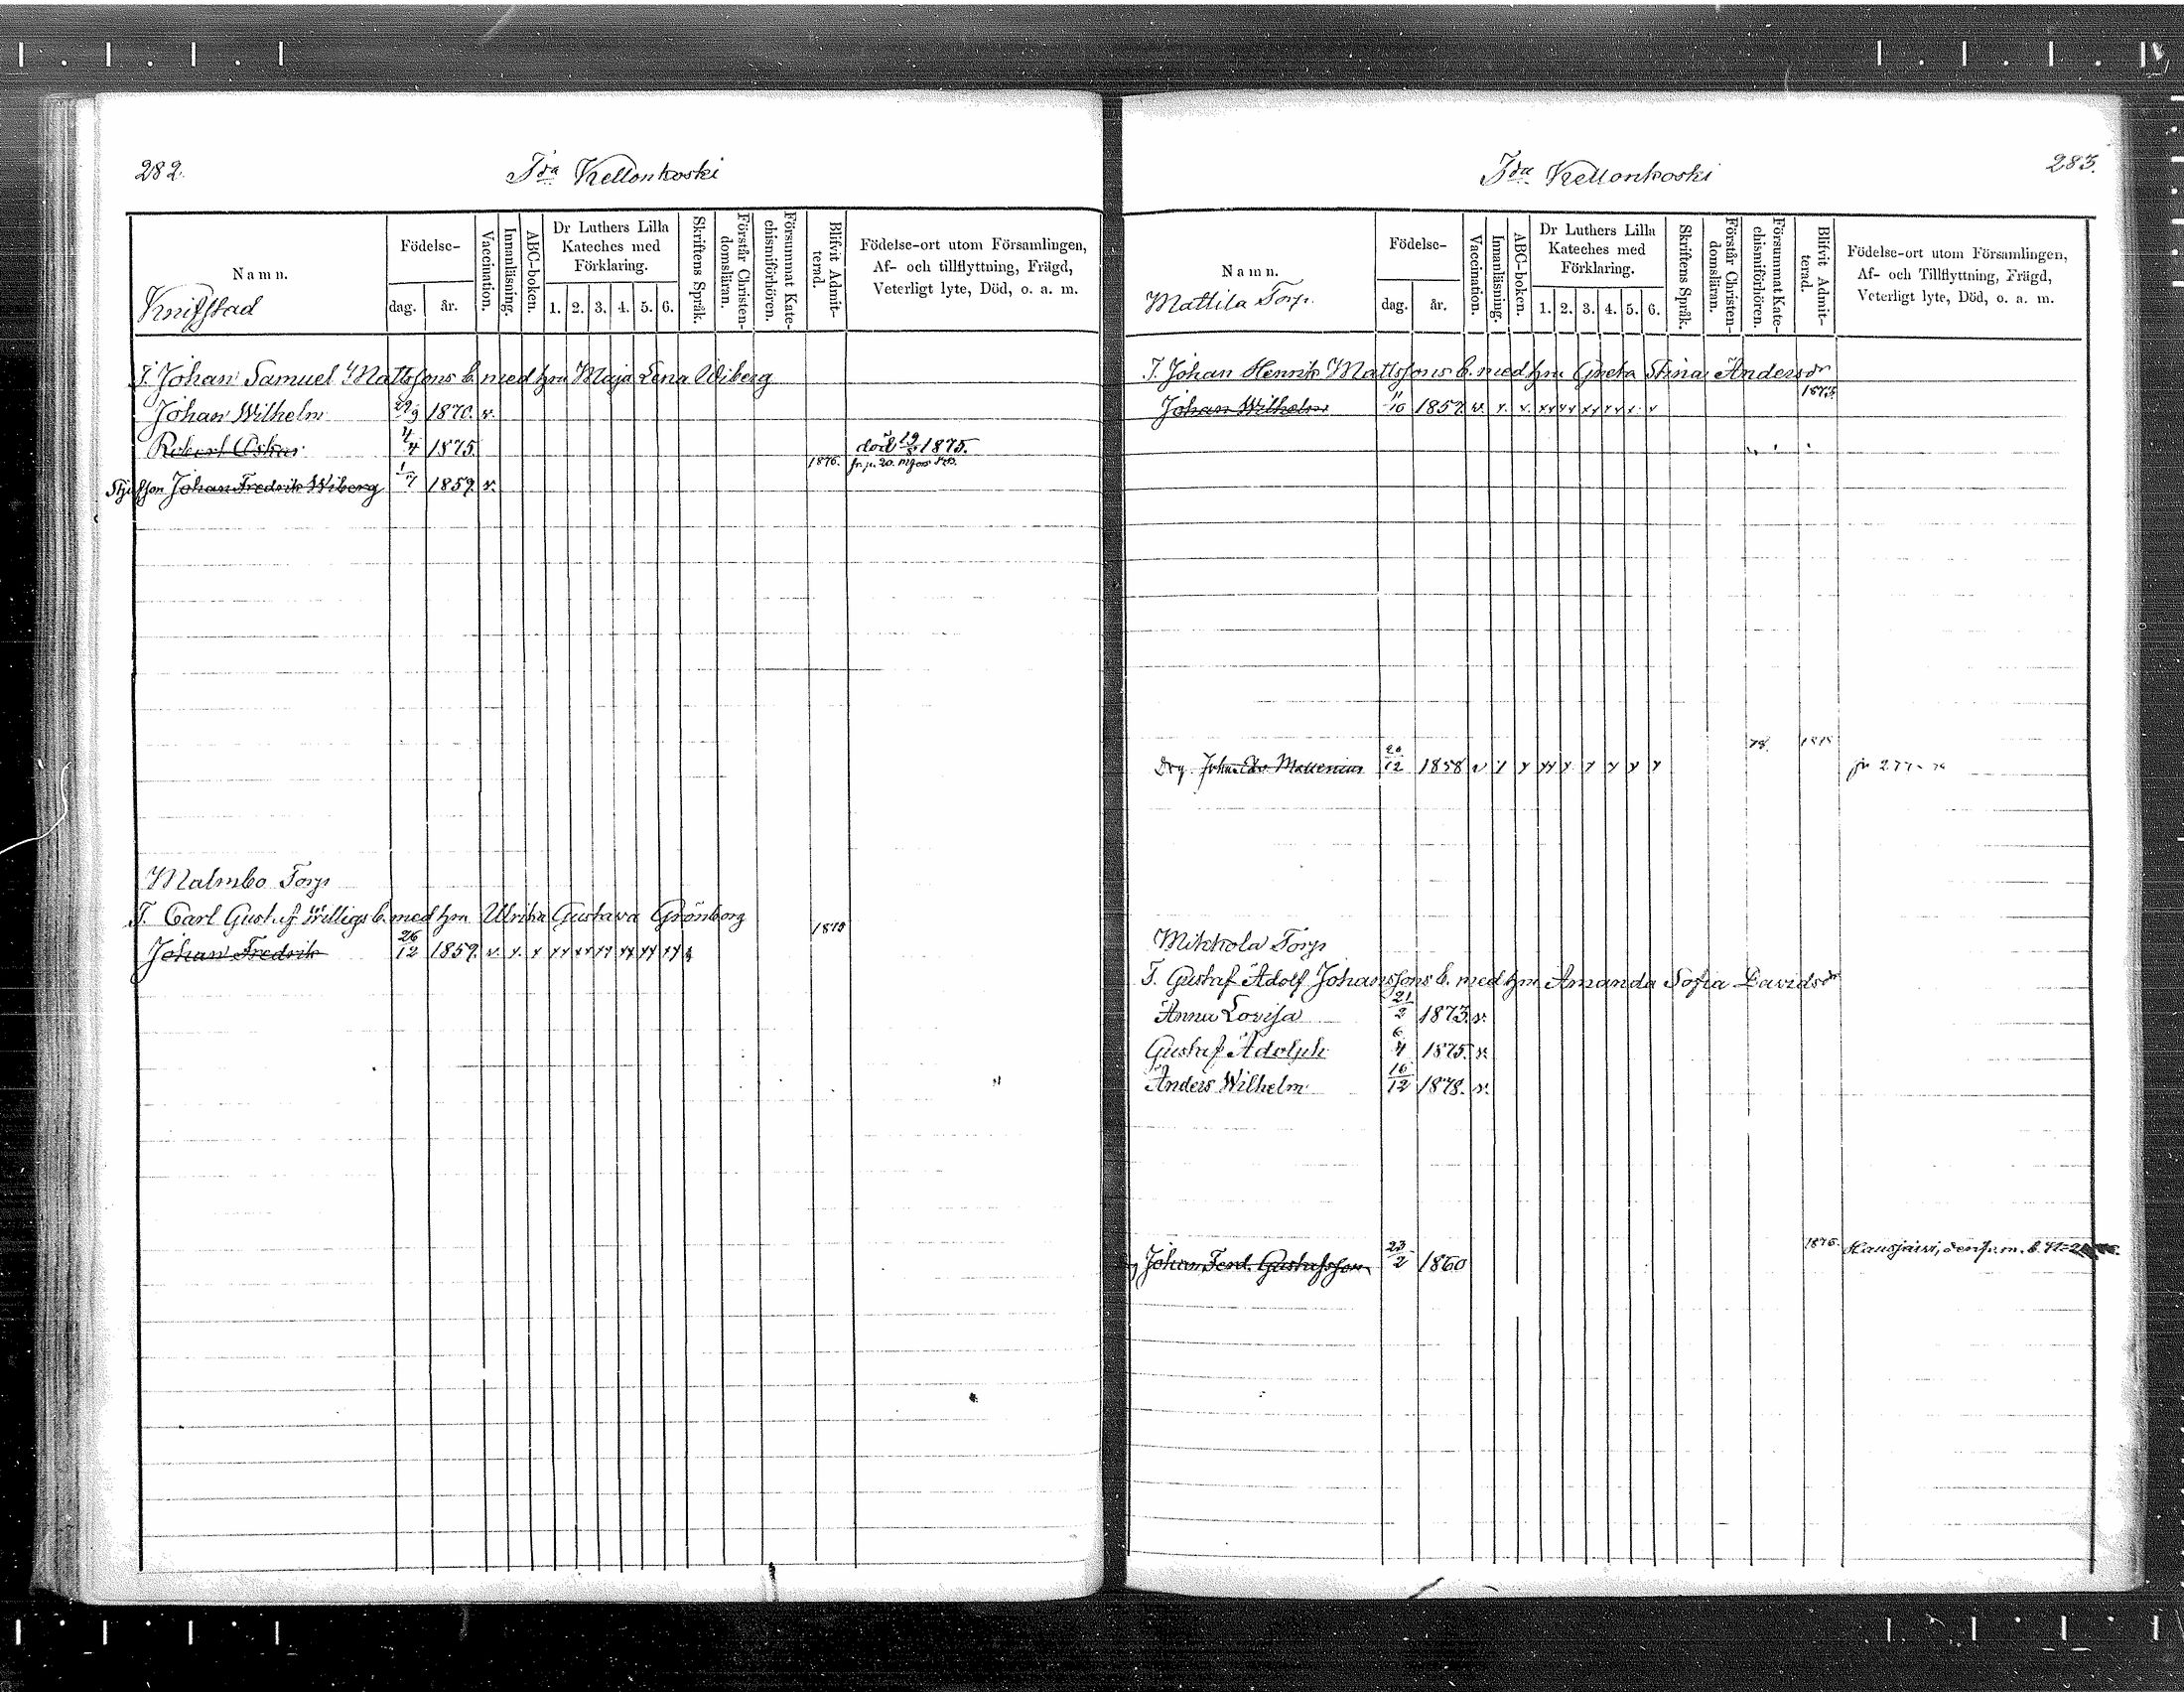 282.
Tra Kellonkoski
Namn.
Födelse-
dag. år.
Vaccination.
Innanläsning.
ABC-boken.
Dr Luthers Lilla Kateches med Förklaring.
1. 2. 3. 4. 5. 6.
Skriftens Språk.
Förstår Christen-domsläran.
Försummat Kate-chismiförhören.
Blifvit Admit-terad.
Födelse-ort utom Församlingen,
Af- och tillflyttning, Frägd,
Veterligt lyte, Död, o. a. m.
Knifstad
T. Johan Samuel Mattssons b. med hm Maja Lena Wiberg
Johan Wilhelm 29/9 1870. v.
Robert Oskar 4/4 1875. död 19/5 1875.
Styfson Johan Fredrik Wiberg 1/7 1859. v. 1876.
Malmbo Torp
T. Carl Gustaf Willigs b. med hm Ulrika Gustava Grönborg
Johan Fredrik 26/12 1859. v. 1875
283.
Tra Kellonkoski
Namn.
Födelse-
dag. år.
Vaccination.
Innanläsning.
ABC-boken.
Dr Luthers Lilla Kateches med Förklaring.
1. 2. 3. 4. 5. 6.
Skriftens Språk.
Förstår Christen-domsläran.
Försummat Kate-chismiförhören.
Blifvit Admit-terad.
Födelse-ort utom Församlingen,
Af- och Tillflyttning, Frägd,
Veterligt lyte, Död, o. a. m.
Mattila Torp.
T. Johan Henrik Mattssons b. med hm Greta Stina Andersdr
Johan Wilhelm 11/10 1857. v. 1875.
Drg. Johan Edv. Mattenius 20/12 1858 v 78. fr 277
Mikkola Torp
T. Gustaf Adolf Johanssons b. med hm Amanda Sofia Davidsdr
Anna Lovisa 21/2 1873. v.
Gustaf Adolph 6/4 1875. v.
Anders Wilhelm 16/12 1878. v.
Johan Ferd. Gustafsson 23/2 1860 1876. Hausjärvi,